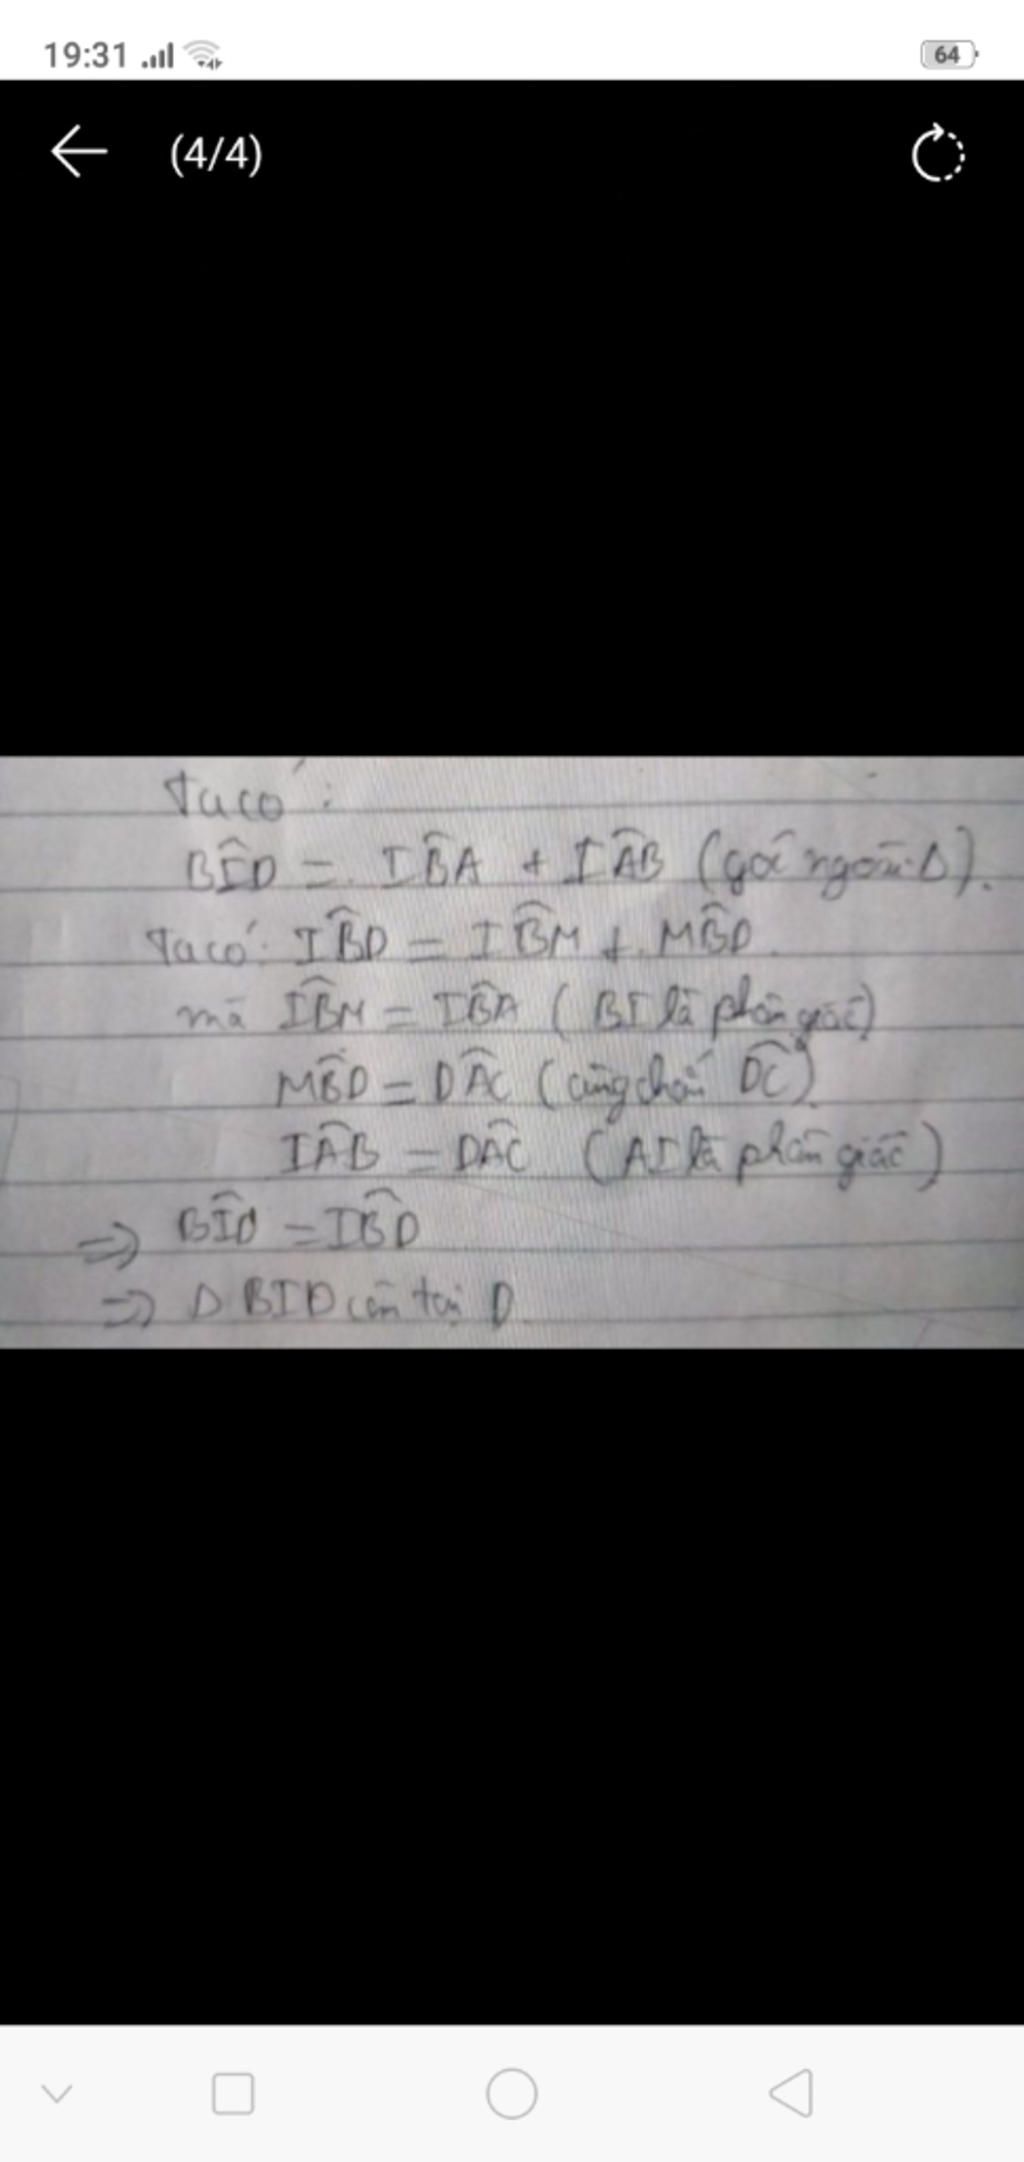 19:31
64
(4/4)
Ta có:
BÎD = IB̂A + IÂB (góc ngoài Δ).
Ta có: IB̂D = IB̂M + MB̂D
mà IB̂M = IB̂A (BI là phân giác)
MB̂D = DÂC (cùng chắn D͡C)
IÂB = DÂC (AI là phân giác)
=> BÎD = IB̂D
=> Δ BID cân tại D